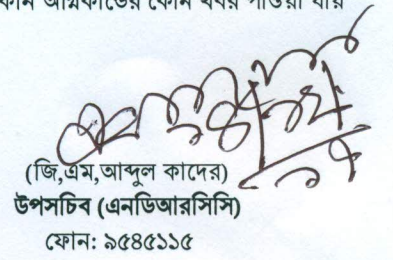 কোন অগ্নিকাণ্ডের কোন খবর পাওয়া যায়
(জি,এম,আব্দুল কাদের)
উপসচিব (এনডিআরসিসি)
ফোন: ৯৫৪৫১১৫